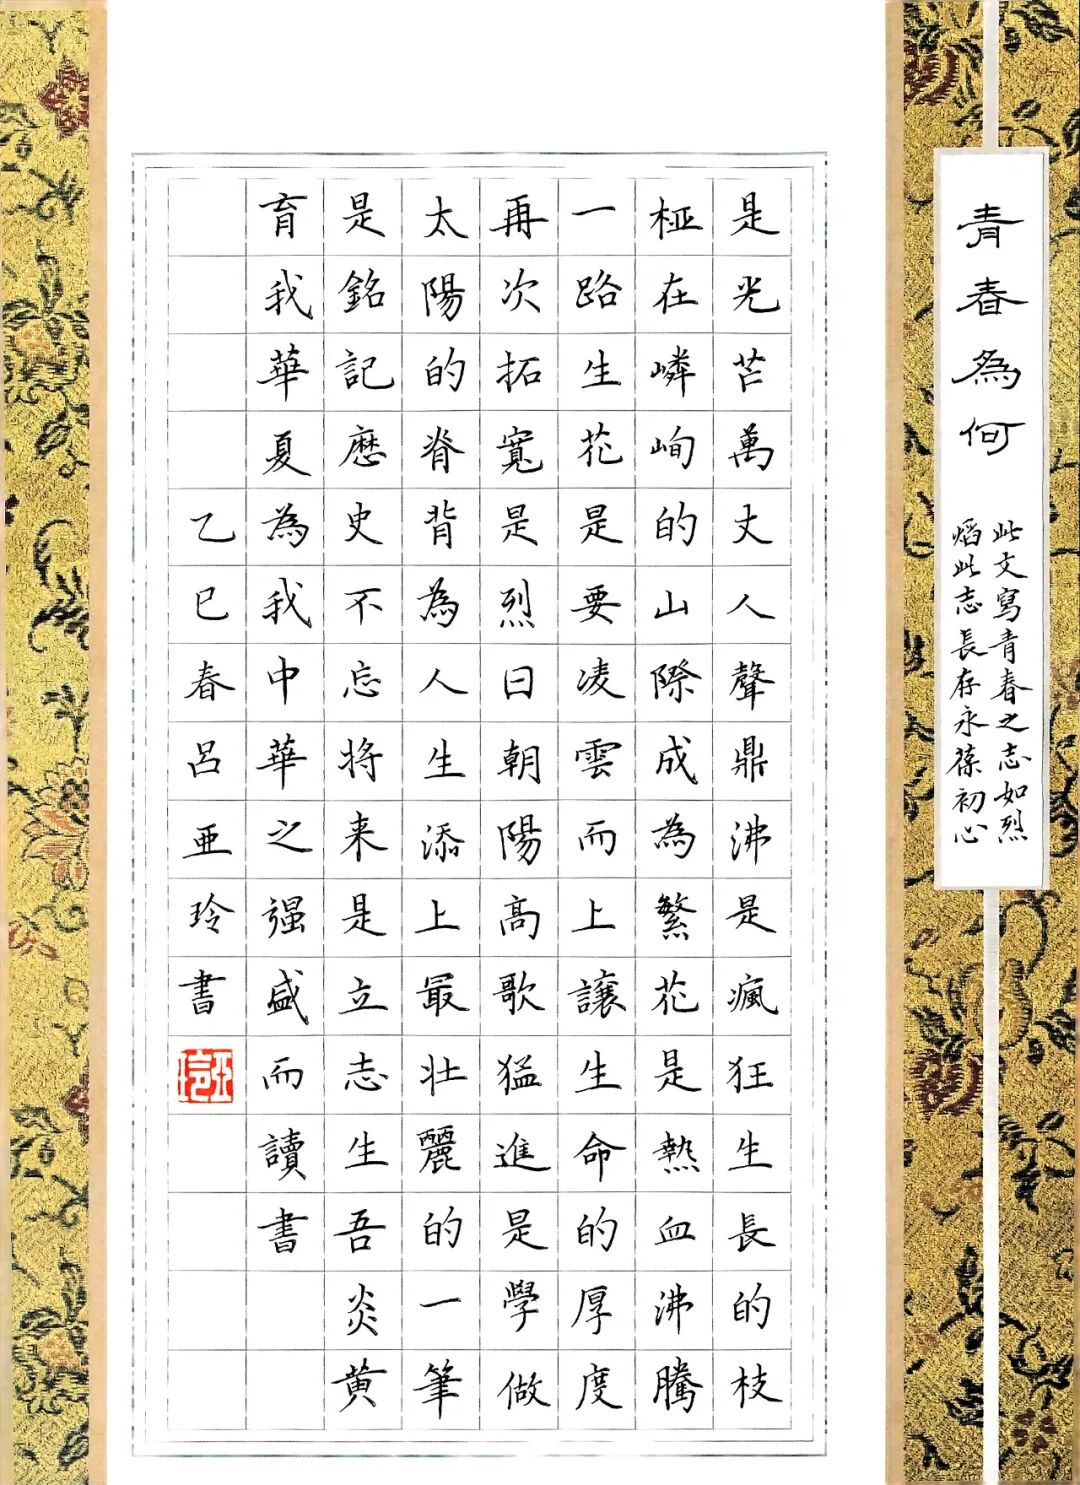 青春為何
此文寫青春之志如烈
焰此志長存永葆初心
是光芒萬丈人聲鼎沸是瘋狂生長的枝
椏在嶙峋的山際成為繁花是熱血沸騰
一路生花是要凌雲而上讓生命的厚度
再次拓寬是烈日朝陽高歌猛進是學做
太陽的脊背為人生添上最壯麗的一筆
是銘記歷史不忘將来是立志生吾炎黄
育我華夏為我中華之强盛而讀書
乙巳春呂亜玲書